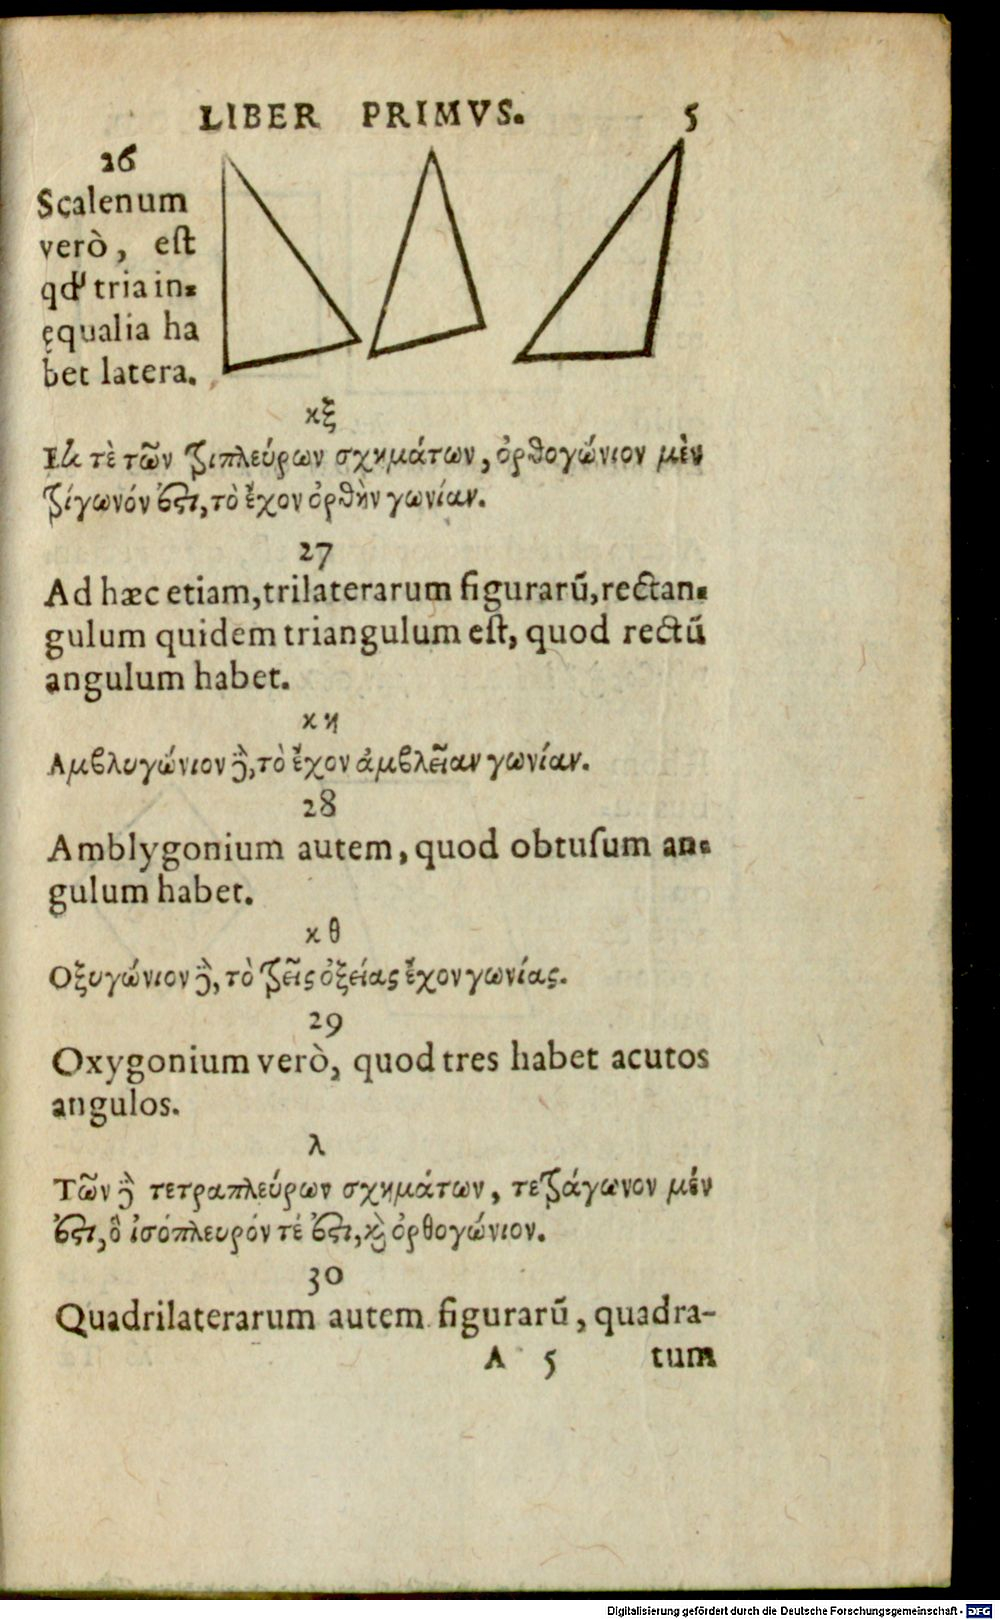 LIBER PRIMVS. 5
26
Scalenum
verò, eſt
qđ tria in-
ęqualia ha
bet latera.
κξ
Εκ τὲ τῶν τριπλεύρων σχημάτων, ὀρθογώνιον μὲν
τρίγωνόν ἐστι, τὸ ἔχον ὀρθὴν γωνίαν.
27
Ad hæc etiam, trilaterarum figurarū, rectan-
gulum quidem triangulum eſt, quod rectū
angulum habet.
κη
Αμβλυγώνιον δὲ, τὸ ἔχον ἀμβλεῖαν γωνίαν.
28
Amblygonium autem, quod obtuſum an-
gulum habet.
κθ
Οξυγώνιον δὲ, τὸ τρεῖς ὀξείας ἔχον γωνίας.
29
Oxygonium verò, quod tres habet acutos
angulos.
λ
Τῶν δὲ τετραπλεύρων σχημάτων, τετράγωνον μέν
ἐστι, ὃ ἰσόπλευρόν τέ ἐστι, καὶ ὀρθογώνιον.
30
Quadrilaterarum autem figurarū, quadra-
A 5 tum
Digitalisierung gefördert durch die Deutsche Forschungsgemeinschaft - DFG